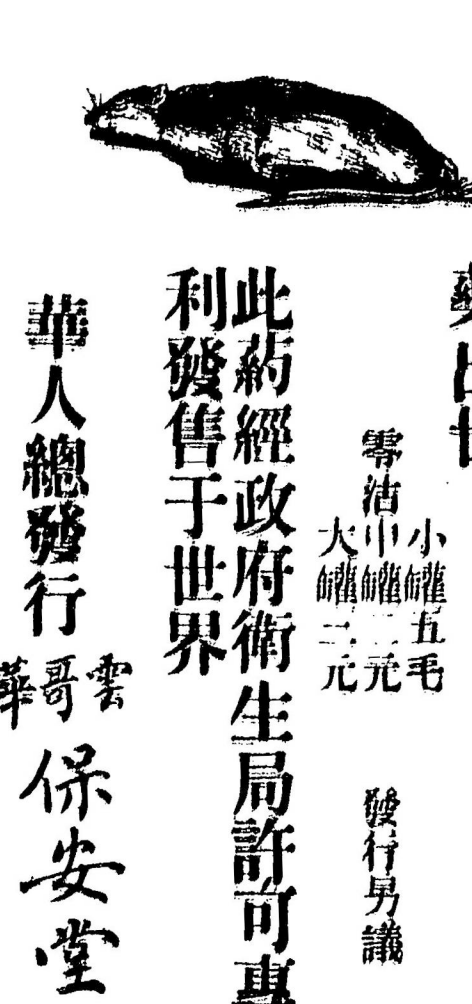 小罐五毛
零沽中罐二元
大罐三元
發行另議
此葯經政府衛生局許可專
利發售于世界
華人總發行
雲哥華
保安堂